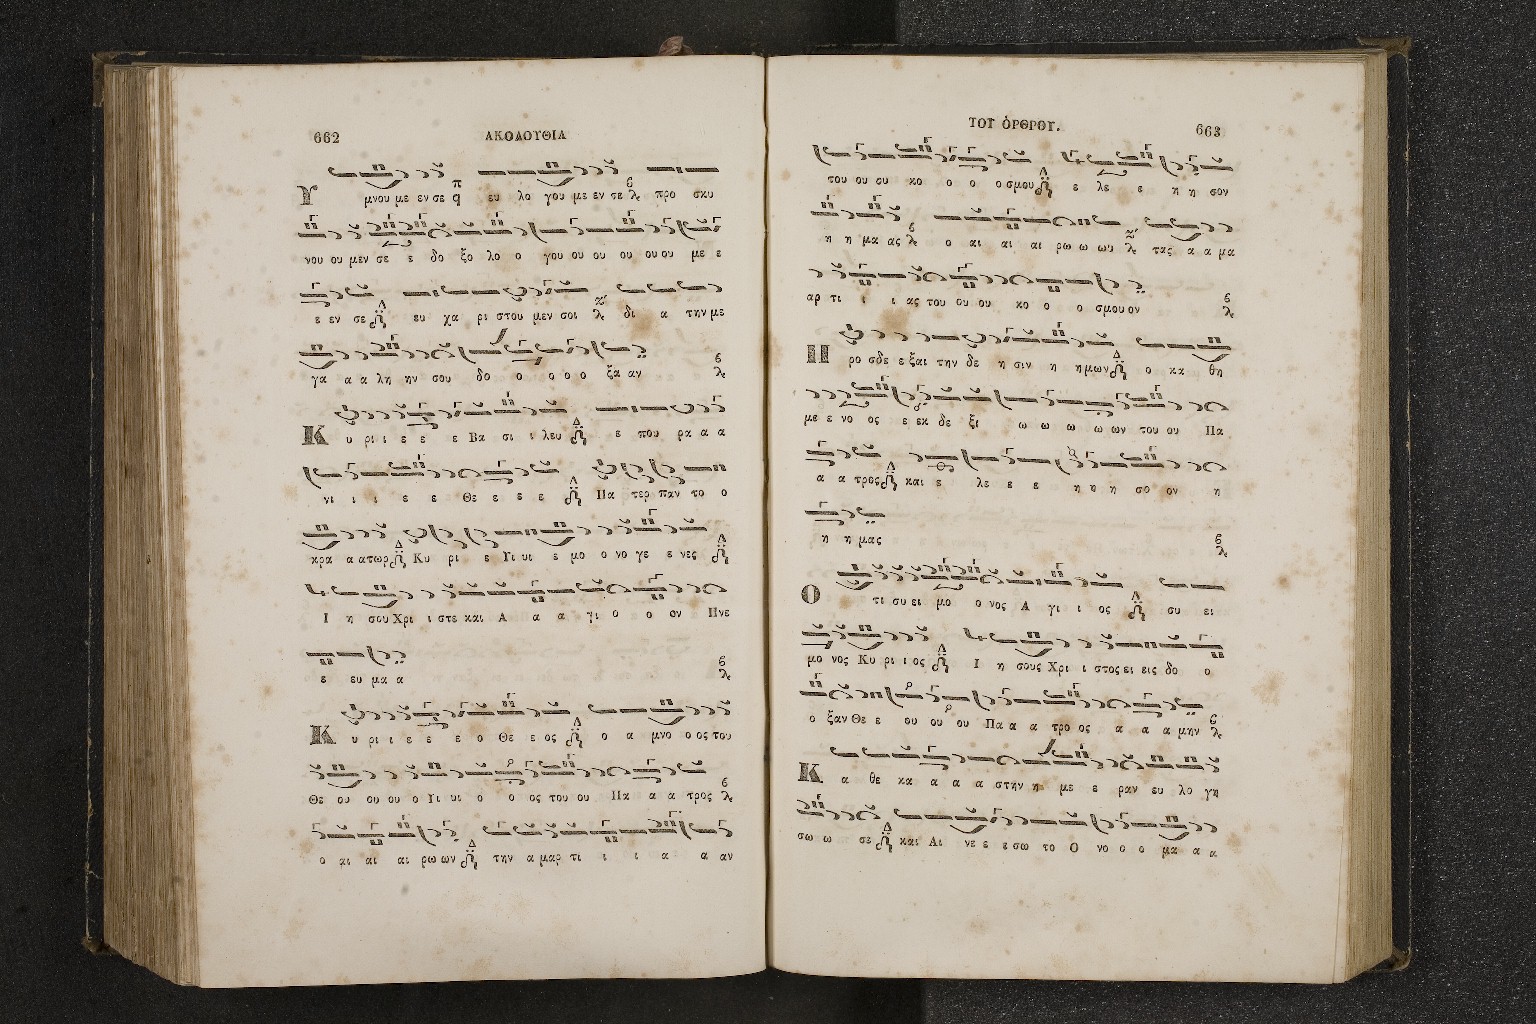 662 ΑΚΟΛΟΥΘΙΑ
Υ μνου με εν σε ευ λο γου με εν σε προ σκυ
νου ου μεν σε ε δο ξο λο ο γου ου ου ου ου ου με ε
ε εν σε ευ χα ρι στου μεν σοι δι α την με
γα α α λη ην σου δο ο ο ο ο ξα αν
Κ υ ρι ι ε ε ε Βα σι ι λευ ε που ρα α α
νι ι ι ε ε Θε ε ε ε Πα τερ παν το ο
κρα α ατωρ Κυ ρι ε Υι υι ε μο ο νο γε ε νες
Ι η σου Χρι ι στε και Α α α γι ο ο ον Πνε
ε ευ μα α
Κ υ ρι ι ε ε ε ε ο Θε ε ος ο α μνο ο ος του
Θε ου ου ου ο Υι υι ο ο ος του ου Πα α α τρος
ο αι αι αι ρω ων την α μαρ τι ι ι α α αν
ΤΟΥ ὈΡΘΡΟΥ. 663
του ου συ κο ο ο ο σμου ε λε ε η η σον
η η μα ας ο αι αι αι ρω ω ων τας α α μα
αρ τι ι ι ας του ου ου κο ο ο σμου ον
Π ρο σδε ε ξαι την δε η σιν η ημων ο κα θη
με ε νο ος ε εκ δε ξι ω ω ω ω ων του ου Πα
α α τρος και ε λε ε ε η η η σο ον η
η η μας
Ο τι συ ει μο ο νος Α γι ι ος συ ει
μο νος Κυ ρι ι ος Ι η σους Χρι ι στος ει εις δο ο
ο ξαν Θε ε ου ου ου Πα α α τρο ος α α α μην
Κ α θε κα α α α στην η με ε ραν ευ λο γη
σω ω σε και Αι νε ε ε σω το Ο νο ο ο μα α α